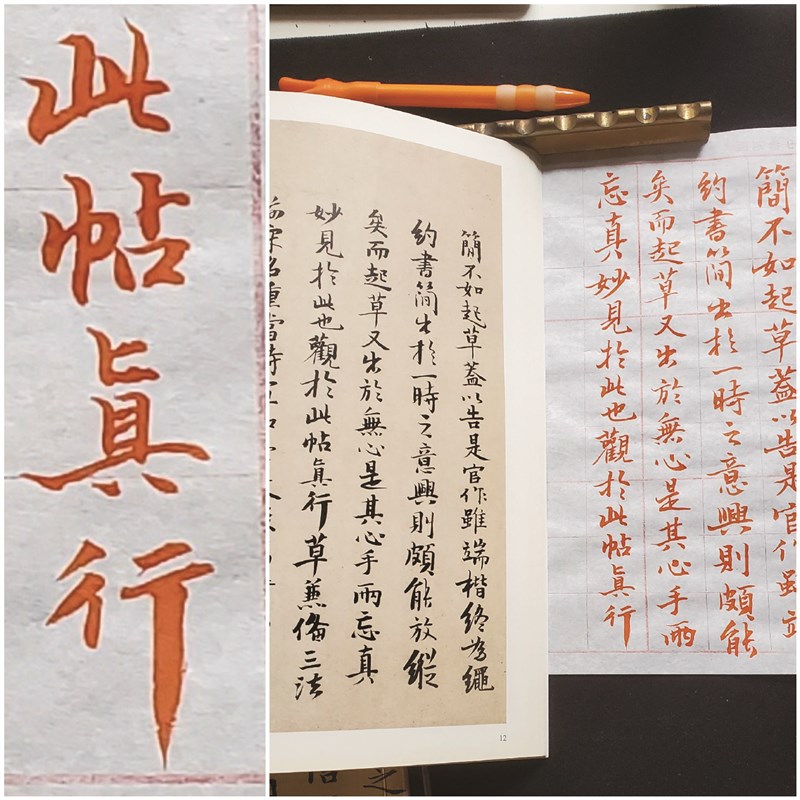 此帖眞行
簡不如起草蓋以告是官作雖端楷終為繩
約書簡出於一時之意興則頗能放縱
矣而起草又出於無心是其心手兩忘真
妙見於此也觀於此帖眞行草兼備三法
重當時
12
簡不如起草蓋以告是官作雖端
約書簡出於一時之意興則頗能
矣而起草又出於無心是其心手兩
忘真妙見於此也觀於此帖眞行
之